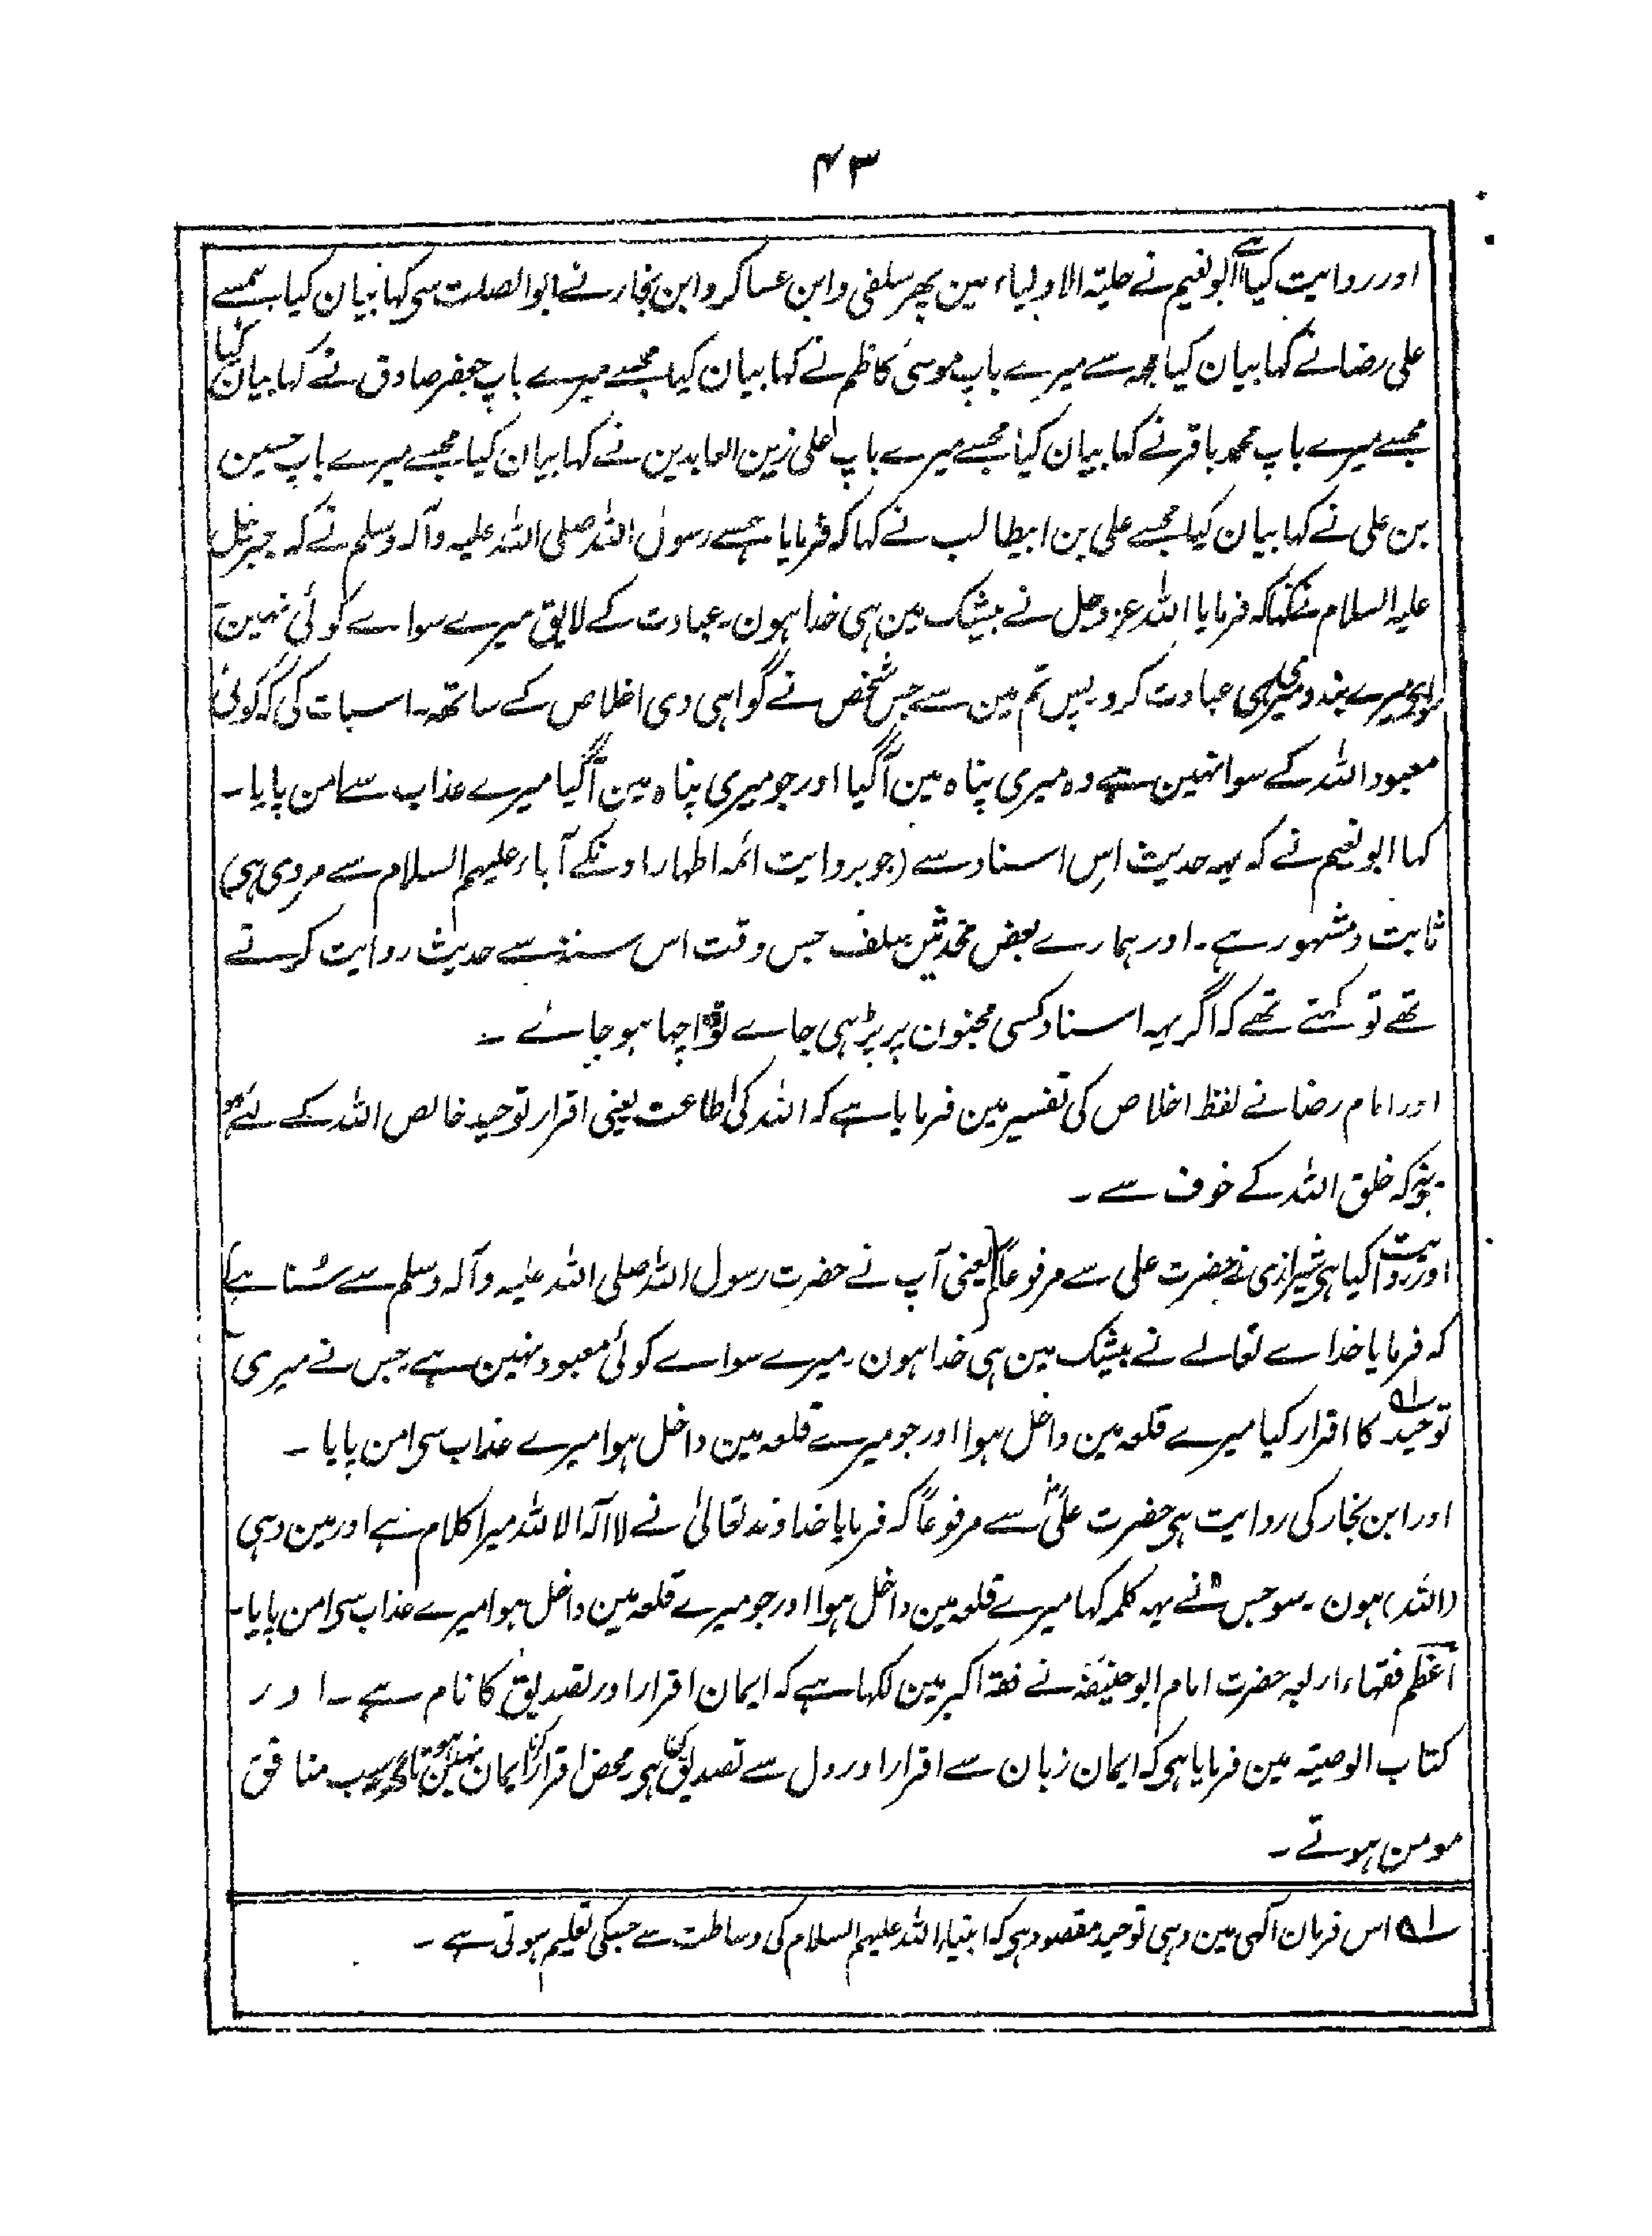 ۴۳
اور روایت کیا ہے ابو نعیم نے حلیۃ الاولیاء مین پھر سلفی و ابن عساکر و ابن نجار نے ابو الصلت سی کہا بیان کیا ہمسے
علی رضا نے کہا بیان کیا مجھ سے میرے باپ موسیٰ کاظم نے کہا بیان کیا مجھسے میرے باپ جعفر صادق نے کہا بیان کیا
مجھسے میرے باپ محمد باقر نے کہا بیان کیا مجھسے میرے باپ علی زین العابدین نے کہا بیان کیا مجھسے میرے باپ حسین
بن علی نے کہا بیان کیا مجھسے علی بن ابیطالب نے کہا کہ فرمایا ہمسے رسول اللہ صلی اللہ علیہ وآلہ وسلم نے کہ جبرئیل
علیہ السلام نے کہا کہ فرمایا اللہ عزوجل نے بیشک مین ہی خدا ہون۔ عبادت کے لایق میرے سواے کوئی نہین
میرے بندو میری ہی عبادت کرو پس تم مین سے جس شخص نے گواہی دی اخلاص کے ساتھ۔ اسبات کی کہ کوئی
معبود اللہ کے سوا نہین ہے وہ میری پناہ مین آگیا اور جو میری پناہ مین آگیا میرے عذاب سے امن پایا۔
کہا ابو نعیم نے کہ یہہ حدیث اس اسناد سے (جو بروایت ائمہ اطہار اونکے آباء علیہم السلام سے مروی ہی)
ثابت و مشہور ہے۔ اور ہمارے بعض محدثین سلف جس وقت اس سند سے حدیث روایت کرتے
تھے تو کہتے تھے کہ اگر یہہ اسناد کسی مجنون پر پڑہی جاے تو اچہا ہو جائے۔
اور امام رضا نے لفظ اخلاص کی تفسیر مین فرمایا ہے کہ اللہ کی اطاعت یعنی اقرار توحید خالص اللہ کے لئے ہو
نہ کہ خلق اللہ کے خوف سے۔
اور روایت کیا ہی شیرازی نے حضرت علی سے مرفوعاً (یعنی آپ نے حضرت رسول اللہ صلی اللہ علیہ وآلہ وسلم سے سُنا ہے)
کہ فرمایا خداے تعالے نے بیشک مین ہی خدا ہون۔ میرے سواے کوئی معبود نہین ہے جس نے میری
توحید ۱؎ کا اقرار کیا میرے قلعہ مین داخل ہوا اور جو میرے قلعہ مین داخل ہوا میرے عذاب سی امن پایا۔
اور ابن نجار کی روایت ہی حضرت علیؓ سے مرفوعاً کہ فرمایا خداوند تعالیٰ نے لا آلہ الا اللہ میرا کلام ہے اور مین وہی
(اللہ) ہون۔ سو جس نے یہہ کلمہ کہا میرے قلعہ مین داخل ہوا اور جو میرے قلعہ مین داخل ہوا میرے عذاب سی امن پایا۔
اعظم فقہاء اربعہ حضرت امام ابو حنیفہؒ نے فقہ اکبر مین لکہا ہے کہ ایمان اقرار اور تصدیق کا نام ہے۔ اور
کتاب الوصیتہ مین فرمایا ہی کہ ایمان زبان سے اقرار اور دل سے تصدیق ہی محض اقرار ایمان نہین سب منافق
مومن ہوتے۔
۱؎ اس فرمان الٰہی مین وہی توحید مقصود ہی کہ انبیاء اللہ علیہم السلام کی وساطت سے جسکی تعلیم ہوتی ہے۔